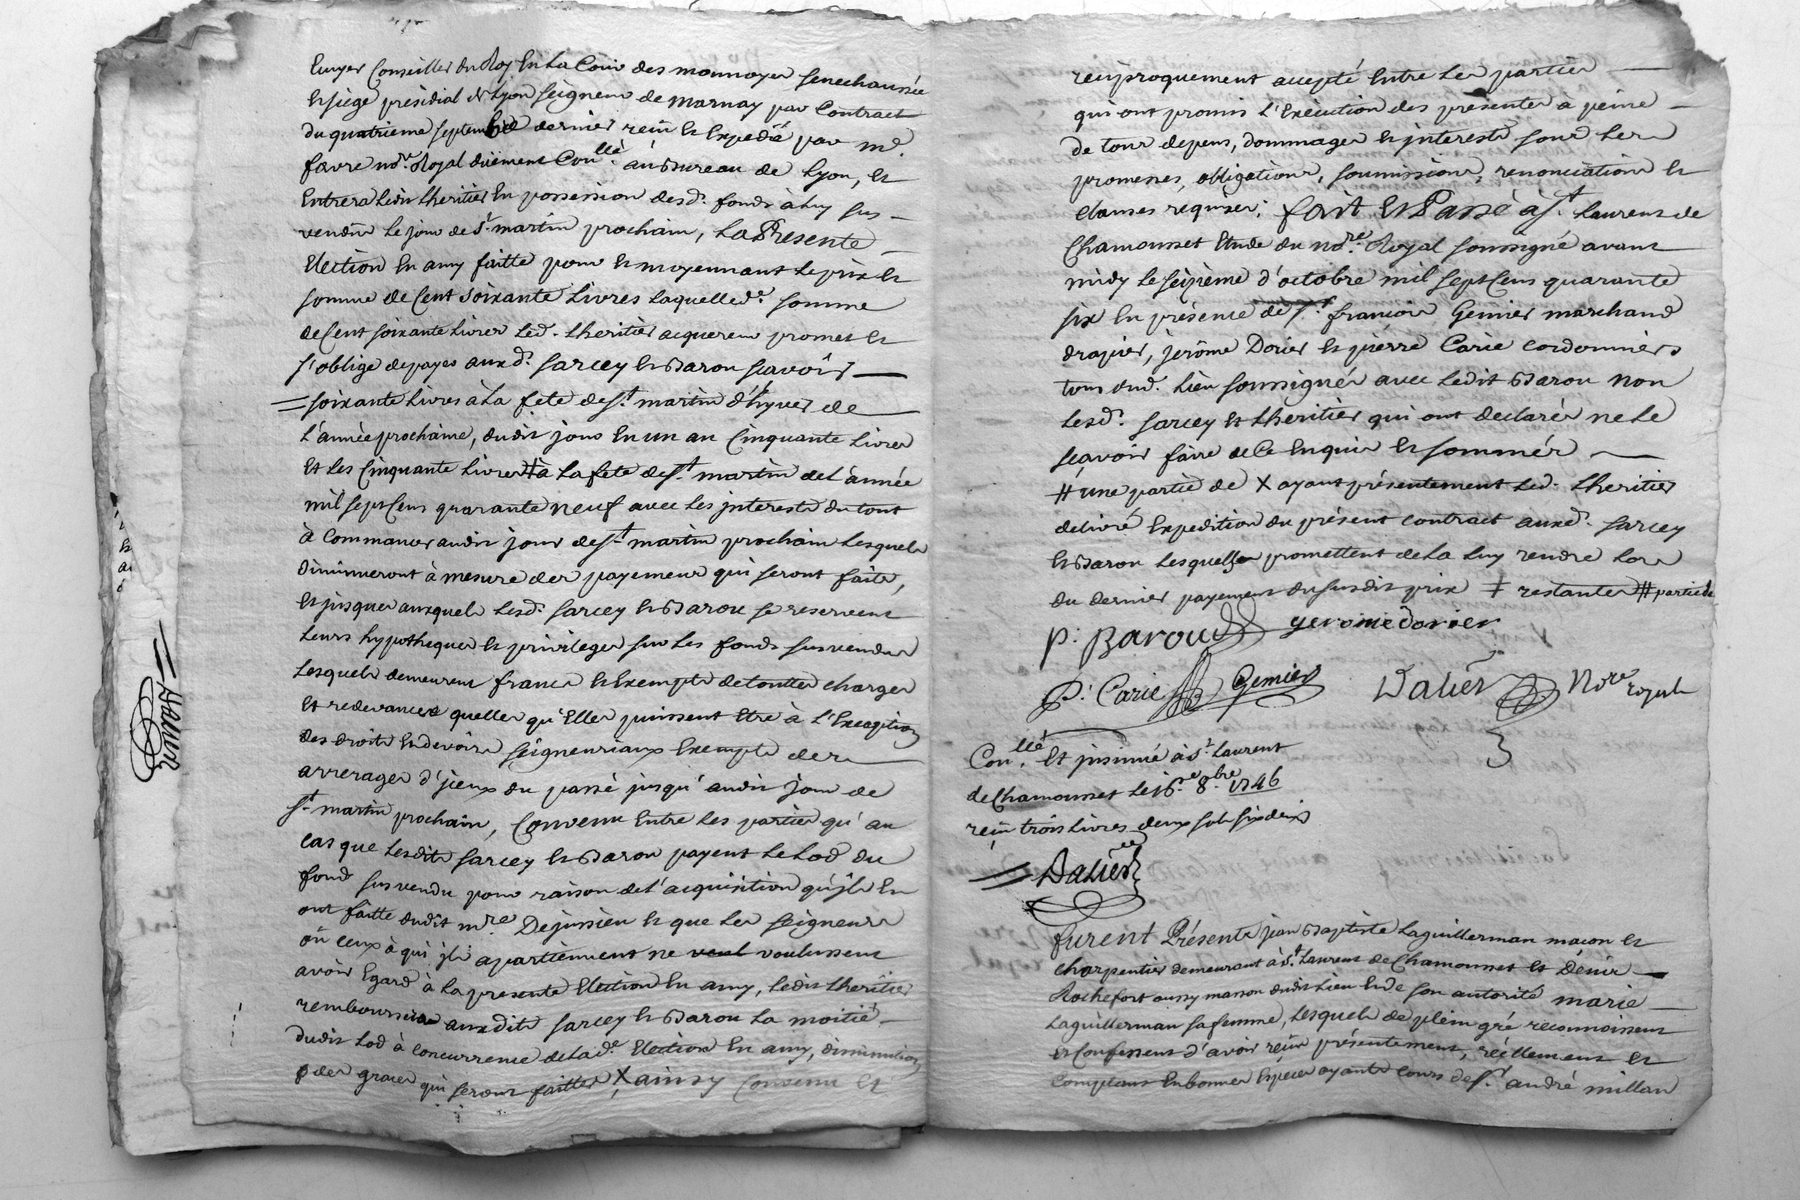 Ecuyer Conseiller du Roy En La Cour des monnoyes senechaussée
Et siège présidial de Lyon seigneur de marnay par Contract
du quatrieme septembre dernier reçu Et Expedié par me.
favre nore. Royal duëment Conllé. au Bureau de Lyon, Et
Entrera Ledit Lheritier En possession desd. fonds à Luy sus
vendus Le jour de St. martin prochain, La Présente
Election En amy faitte pour Et moyennant Le prix Et
somme de Cent Soixante Livres Laquelled.e somme
de Cent soixante Livres Led. Lheritier acquereur promet Et
s'oblige de payer auxd. sarcey Et Barou sçavoir
soixante Livres à La fete de St. martin d'hyver de
L'année prochaine, dudit jour En un an Cinquante Livres
Et Les Cinquante Livres # à La fete de St. martin de L'année
mil sept Cens quarante neuf avec Les jnterests du tout
à Commancer audit jour de St. martin prochain Lesquels
diminueront à mesure des payemens qui seront faits,
Et jusques auxquels Lesd. sarcey Et Barou se reservent
Leurs hypotheques Et privileges sur Les fonds susvendus
Lesquels demeurent francs Et Exempts de touttes charges
Et redevances quelles qu'Elles puissent Etre à L'Exception
des droits Et devoirs seigneuriaux Exempts des
arrerages d'jceux du passé jusqu'audit jour de
St. martin prochain, Convenu Entre Les parties qu'au
cas que Lesdits sarcey Et Barou payent Le Lod du
fond susvendu pour raison de L'acquisition qu'jls En
ont faitte dudit mre Dejussieu Et que Les seigneurs
où ceux à qui jls apartiennent ne veul voulussent
avoir Egard à La presente Election En amy, Ledit Lheritier
remboursera auxdits sarcey Et Barou La moitié
dudit Lod à concurrence de Lad.e Election En amy, diminution
des graces qui seront faittes, X ainsy Convenu Et
reciproquement accepté Entre Les parties
qui ont promis L'Execution des presentes à peine
de tous depens, dommages Et jnterests sous Leurs
promesses, obligations, soumissions, renonciations Et
clauses requises: fait Et Passé à St. Laurens de
Chamousset Etude du nore. Royal soussigné avant
midy Le seizieme d'octobre mil sept Cens quarante
six En présence de Sr. françois Gemier marchand
drapier, jerôme Dorier Et pierre Carie cordonniers
tous dud. Lieu soussignés avec Ledit Barou non
Lesd. sarcey Et Lheritier qui ont declarés ne Le
sçavoir faire de Ce Enquis Et sommés
# une partie de X ayant présentement Led. Lheritier
delivré Expedition du présent contract auxd. sarcey
Et Barou Lesquels promettent de La Luy rendre Lors
du dernier payement du susdit prix ‡ restantes # partie de
P: Barou gerome Dorier
P. Carie Gemier Dalier Nore royal
Conllé. Et jnsinué à St. Laurent
de Chamousset Le 16.e 8.bre 1746
reçu trois Livres deux sols six den.
Dalier
furent Présents jean Baptiste Laguillerman maçon Et
charpentier demeurant à St. Laurens de Chamousset Et Denis
Rochefort aussy masson dudit Lieu Et de son autorité marie
Laguillerman sa femme, Lesquels de plein gré reconnoissent
Et Confessent d'avoir reçu présentement, réellement Et
comptant En bonnes Especes ayants cours de Sr. andré millan